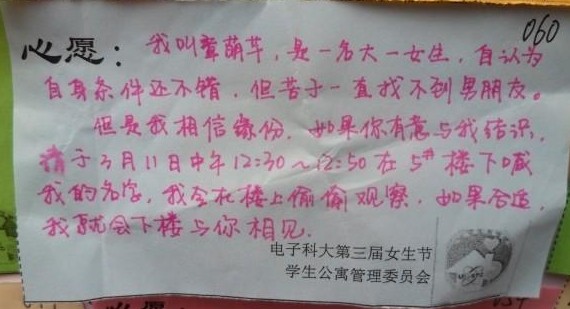 060
心愿：我叫章萌芊，是一名大一女生，自认为
自身条件还不错，但苦于一直找不到男朋友。
但是我相信缘份，如果你有意与我结识，
请于3月11日中午12:30～12:50在5#楼下喊
我的名字，我会在楼上偷偷观察，如果合适，
我就会下楼与你相见.
电子科大第三届女生节
学生公寓管理委员会
心愿